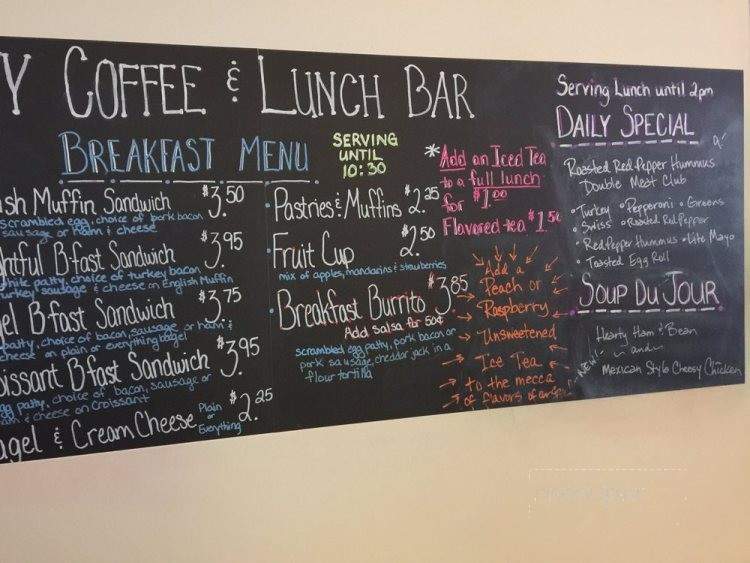 Y COFFEE & LUNCH BAR
BREAKFAST MENU
SERVING
UNTIL
10:30
ish Muffin Sandwich $3.50
scrambled egg, choice of pork bacon
sausage or ham & cheese
htful B-fast Sandwich $3.95
white patty, choice of turkey bacon
turkey sausage & cheese on English Muffin
gel B-fast Sandwich $3.75
patty, choice of bacon, sausage or ham &
cheese on plain or everything bagel
oissant B-fast Sandwich $3.95
egg patty, choice of bacon, sausage or
ham & cheese on croissant
agel & Cream Cheese Plain or Everything $2.25
• Pastries & Muffins $2.25
• Fruit Cup $2.50
mix of apples, mandarins & strawberries
• Breakfast Burrito $3.85
Add Salsa for 50¢
scrambled egg patty, pork bacon or
pork sausage, cheddar jack in a
flour tortilla
* Add an Iced Tea
to a full lunch
for $1.00
Flavored tea $1.50
Add a
Peach or
Raspberry
Unsweetened
Ice Tea
to the mecca
of flavors of
Serving Lunch until 2pm
DAILY SPECIAL
Roasted Red Pepper Hummus
Double Meat Club
• Turkey • Pepperoni • Greens
• Swiss • Roasted Red Pepper
• Red Pepper Hummus • Lite Mayo
• Toasted Egg Roll
SOUP DU JOUR
Hearty Ham & Bean
~ and ~
NEW! Mexican Style Cheesy Chicken